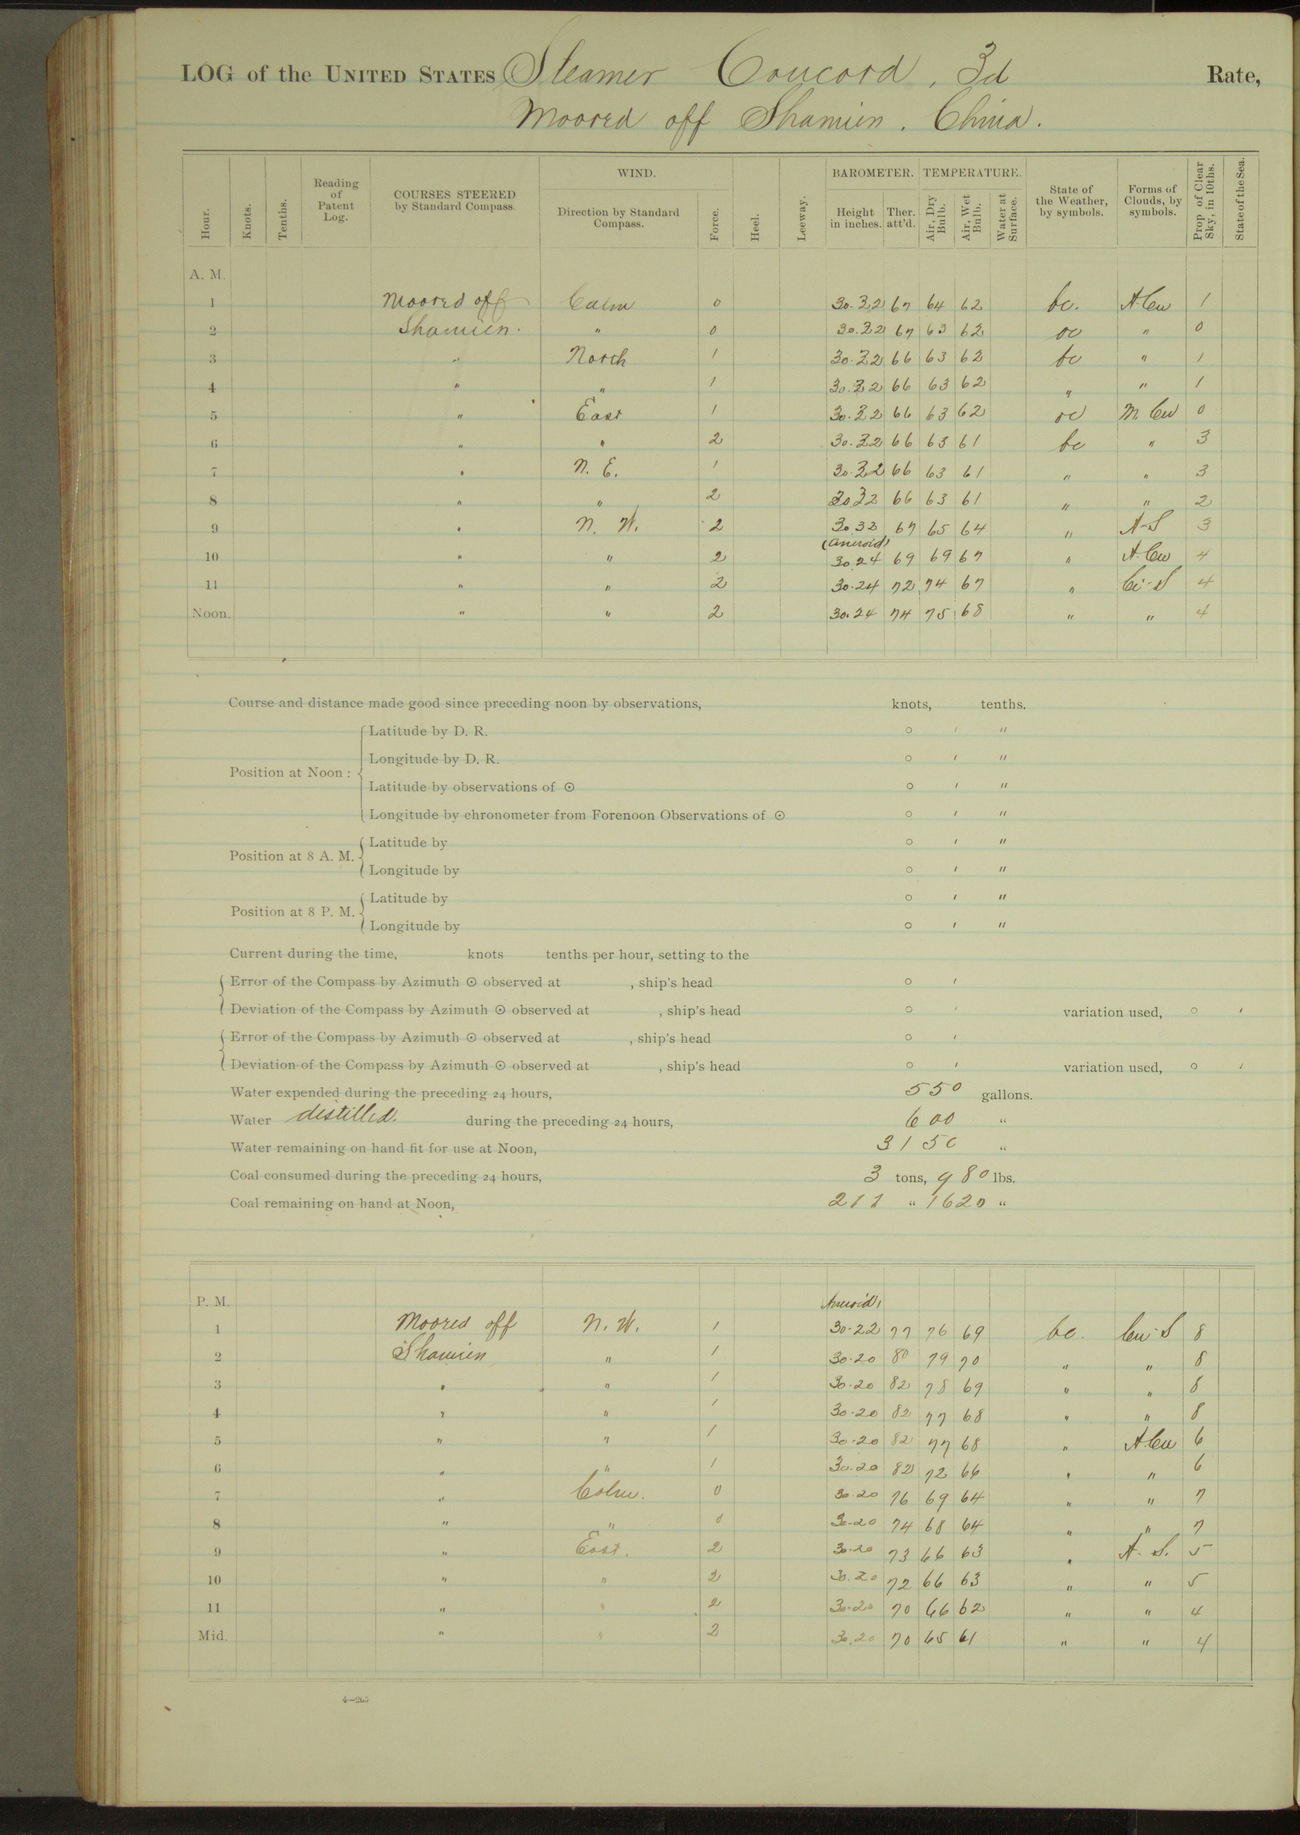 LOG of the UNITED STATES Steamer Concord, 3d Rate,
Moored off Shamien. China.
Hour. Knots. Tenths. Reading of Patent Log. COURSES STEERED by Standard Compass. WIND. Direction by Standard Compass. Force. Heel. Leeway. BAROMETER. Height in inches. Ther. att'd. TEMPERATURE. Air, Dry Bulb. Air, Wet Bulb. Water at Surface. State of the Weather, by symbols. Forms of Clouds, by symbols. Prop. of Clear Sky, in 10ths. State of the Sea.
A. M.
1 Moored off Calm 0 30.22 67 64 62 bc. A-Cu 1
2 Shamien. " 0 30.22 67 63 62 oc " 0
3 " North 1 30.22 66 63 62 bc " 1
4 " " 1 30.22 66 63 62 " " 1
5 " East 1 30.22 66 63 62 oc M Cu 0
6 " " 2 30.22 66 63 61 bc " 3
7 " N. E. 1 30.22 66 63 61 " " 3
8 " " 2 66 63 61 " " 2
9 " N. W. 2 67 65 64 " A-S 3
(Aneroid)
10 " " 2 30.24 69 69 67 " A-Cu 4
11 " " 2 30.24 72 74 67 " Ci-S 4
Noon. " " 2 30.24 74 75 68 " " 4
Course and distance made good since preceding noon by observations, knots, tenths.
Position at Noon: Latitude by D. R. ° ' "
Longitude by D. R. ° ' "
Latitude by observations of ☉ ° ' "
Longitude by chronometer from Forenoon Observations of ☉ ° ' "
Position at 8 A. M. Latitude by ° ' "
Longitude by ° ' "
Position at 8 P. M. Latitude by ° ' "
Longitude by ° ' "
Current during the time, knots tenths per hour, setting to the
Error of the Compass by Azimuth ☉ observed at , ship's head ° '
Deviation of the Compass by Azimuth ☉ observed at , ship's head ° ' variation used, ° '
Error of the Compass by Azimuth ☉ observed at , ship's head ° '
Deviation of the Compass by Azimuth ☉ observed at , ship's head ° ' variation used, ° '
Water expended during the preceding 24 hours, 550 gallons.
Water distilled during the preceding 24 hours, 600 "
Water remaining on hand fit for use at Noon, 3150 "
Coal consumed during the preceding 24 hours, 3 tons, 980 lbs.
Coal remaining on hand at Noon, 211 " 1620 "
P. M. Aneroid
1 Moored off N. W. 1 30.22 77 76 69 bc. Cu-S 8
2 Shamien " 1 30.20 80 79 70 " " 8
3 " " 1 30.20 82 78 69 " " 8
4 " " 1 30.20 82 77 68 " " 8
5 " " 1 30.20 82 77 68 " A-Cu 6
6 " " 1 30.20 82 72 66 " " 6
7 " Calm. 0 30.20 76 69 64 " " 7
8 " " 0 30.20 74 68 64 " " 7
9 " East. 2 30.20 73 66 63 " A-S. 5
10 " " 2 30.20 72 66 63 " " 5
11 " " 2 30.20 70 66 62 " " 4
Mid. " " 2 30.20 70 65 61 " " 4
4—265